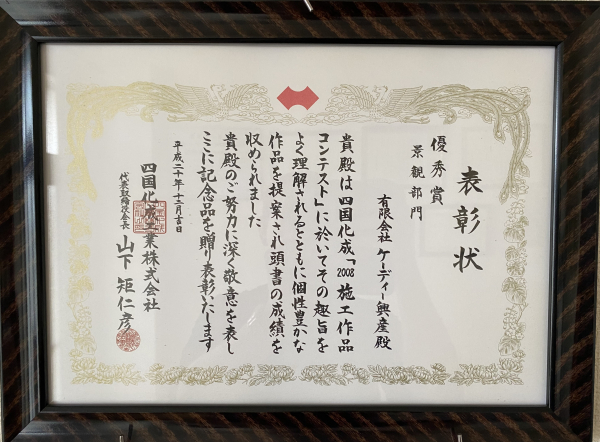 表彰状
優秀賞
景観部門
有限会社 ケーディー興産殿
貴殿は四国化成「2008施工作品
コンテスト」に於いてその趣旨を
よく理解されるとともに個性豊かな
作品を提案され頭書の成績を
収められました
貴殿のご努力に深く敬意を表し
ここに記念品を贈り表彰いたします
平成二十年十二月吉日
四国化成工業株式会社
代表取締役会長 山下矩仁彦